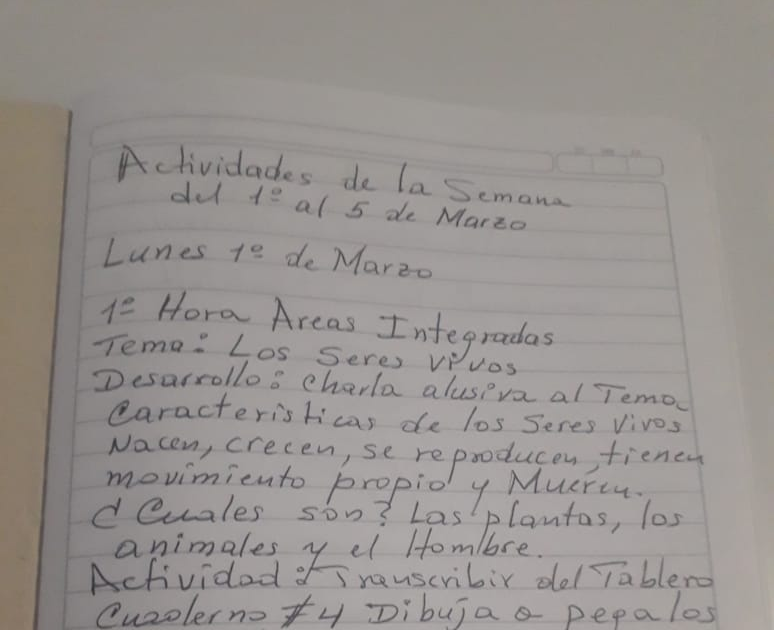 Actividades de la Semana
del 1º al 5 de Marzo
Lunes 1º de Marzo
1º Hora Areas Integradas
Tema: Los Seres vivos
Desarrollo: charla alusiva al Tema
Caracteristicas de los Seres Vivos
Nacen, crecen, se reproducen, tienen
movimiento propio y Mueren.
¿ Cuales son? Las plantas, los
animales y el Hombre.
Actividad: Transcribir del Tablero
Cuaderno #4 Dibuja o pega los